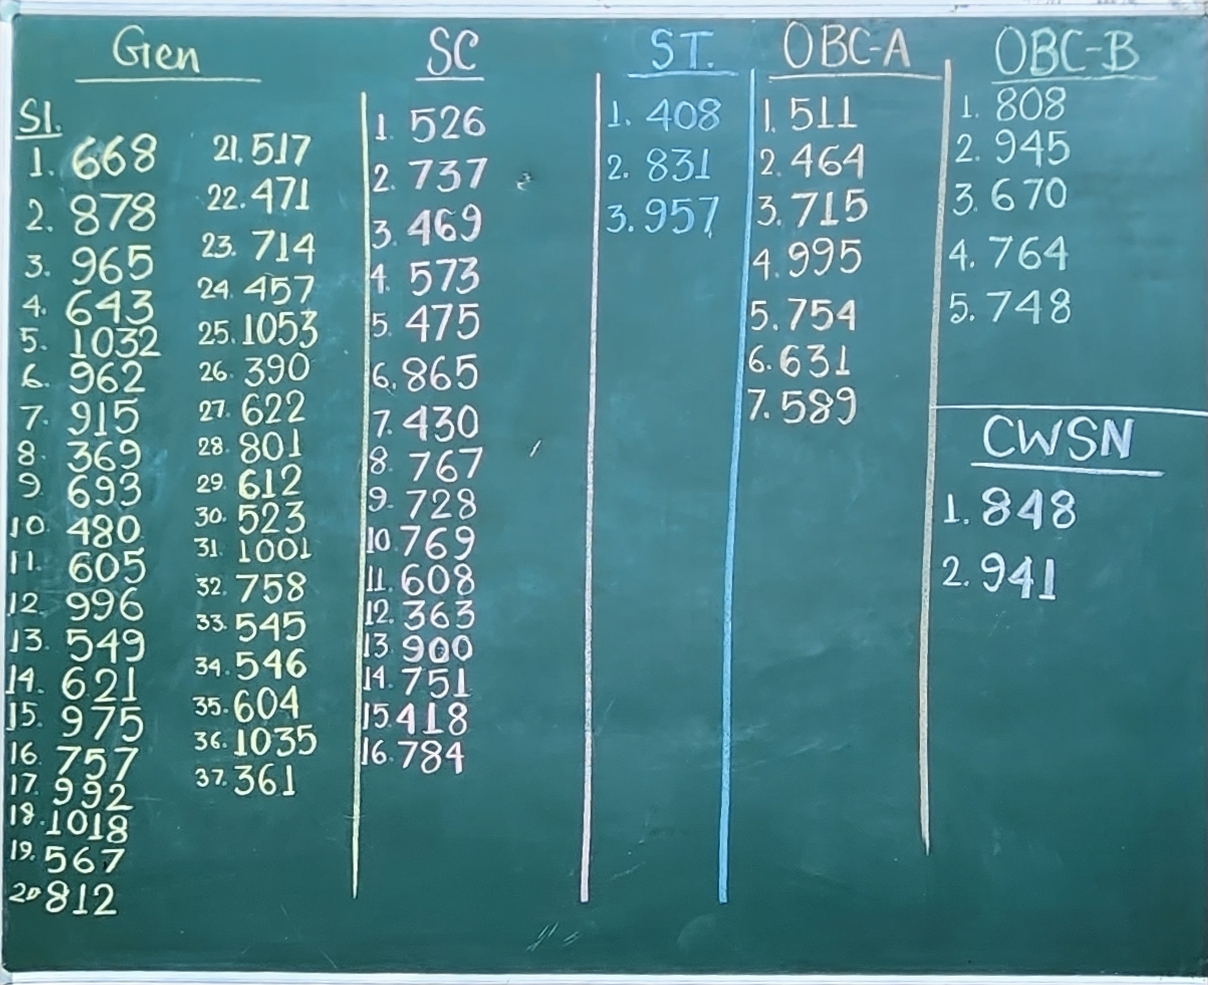 Gen
Sl.
1. 668
2. 878
3. 965
4. 643
5. 1032
6. 962
7. 915
8. 369
9. 693
10. 480
11. 605
12. 996
13. 549
14. 621
15. 975
16. 757
17. 992
18. 1018
19. 567
20 812
21. 517
22. 471
23. 714
24. 457
25. 1053
26. 390
27. 622
28. 801
29. 612
30. 523
31. 1001
32. 758
33. 545
34. 546
35. 604
36. 1035
37. 361
SC
1. 526
2. 737
3. 469
4. 573
5. 475
6. 865
7. 430
8. 767
9. 728
10. 769
11. 608
12. 363
13. 900
14. 751
15. 418
16. 784
ST.
1. 408
2. 831
3. 957
OBC-A
1. 511
2. 464
3. 715
4. 995
5. 754
6. 631
7. 589
OBC-B
1. 808
2. 945
3. 670
4. 764
5. 748
CWSN
1. 848
2. 941